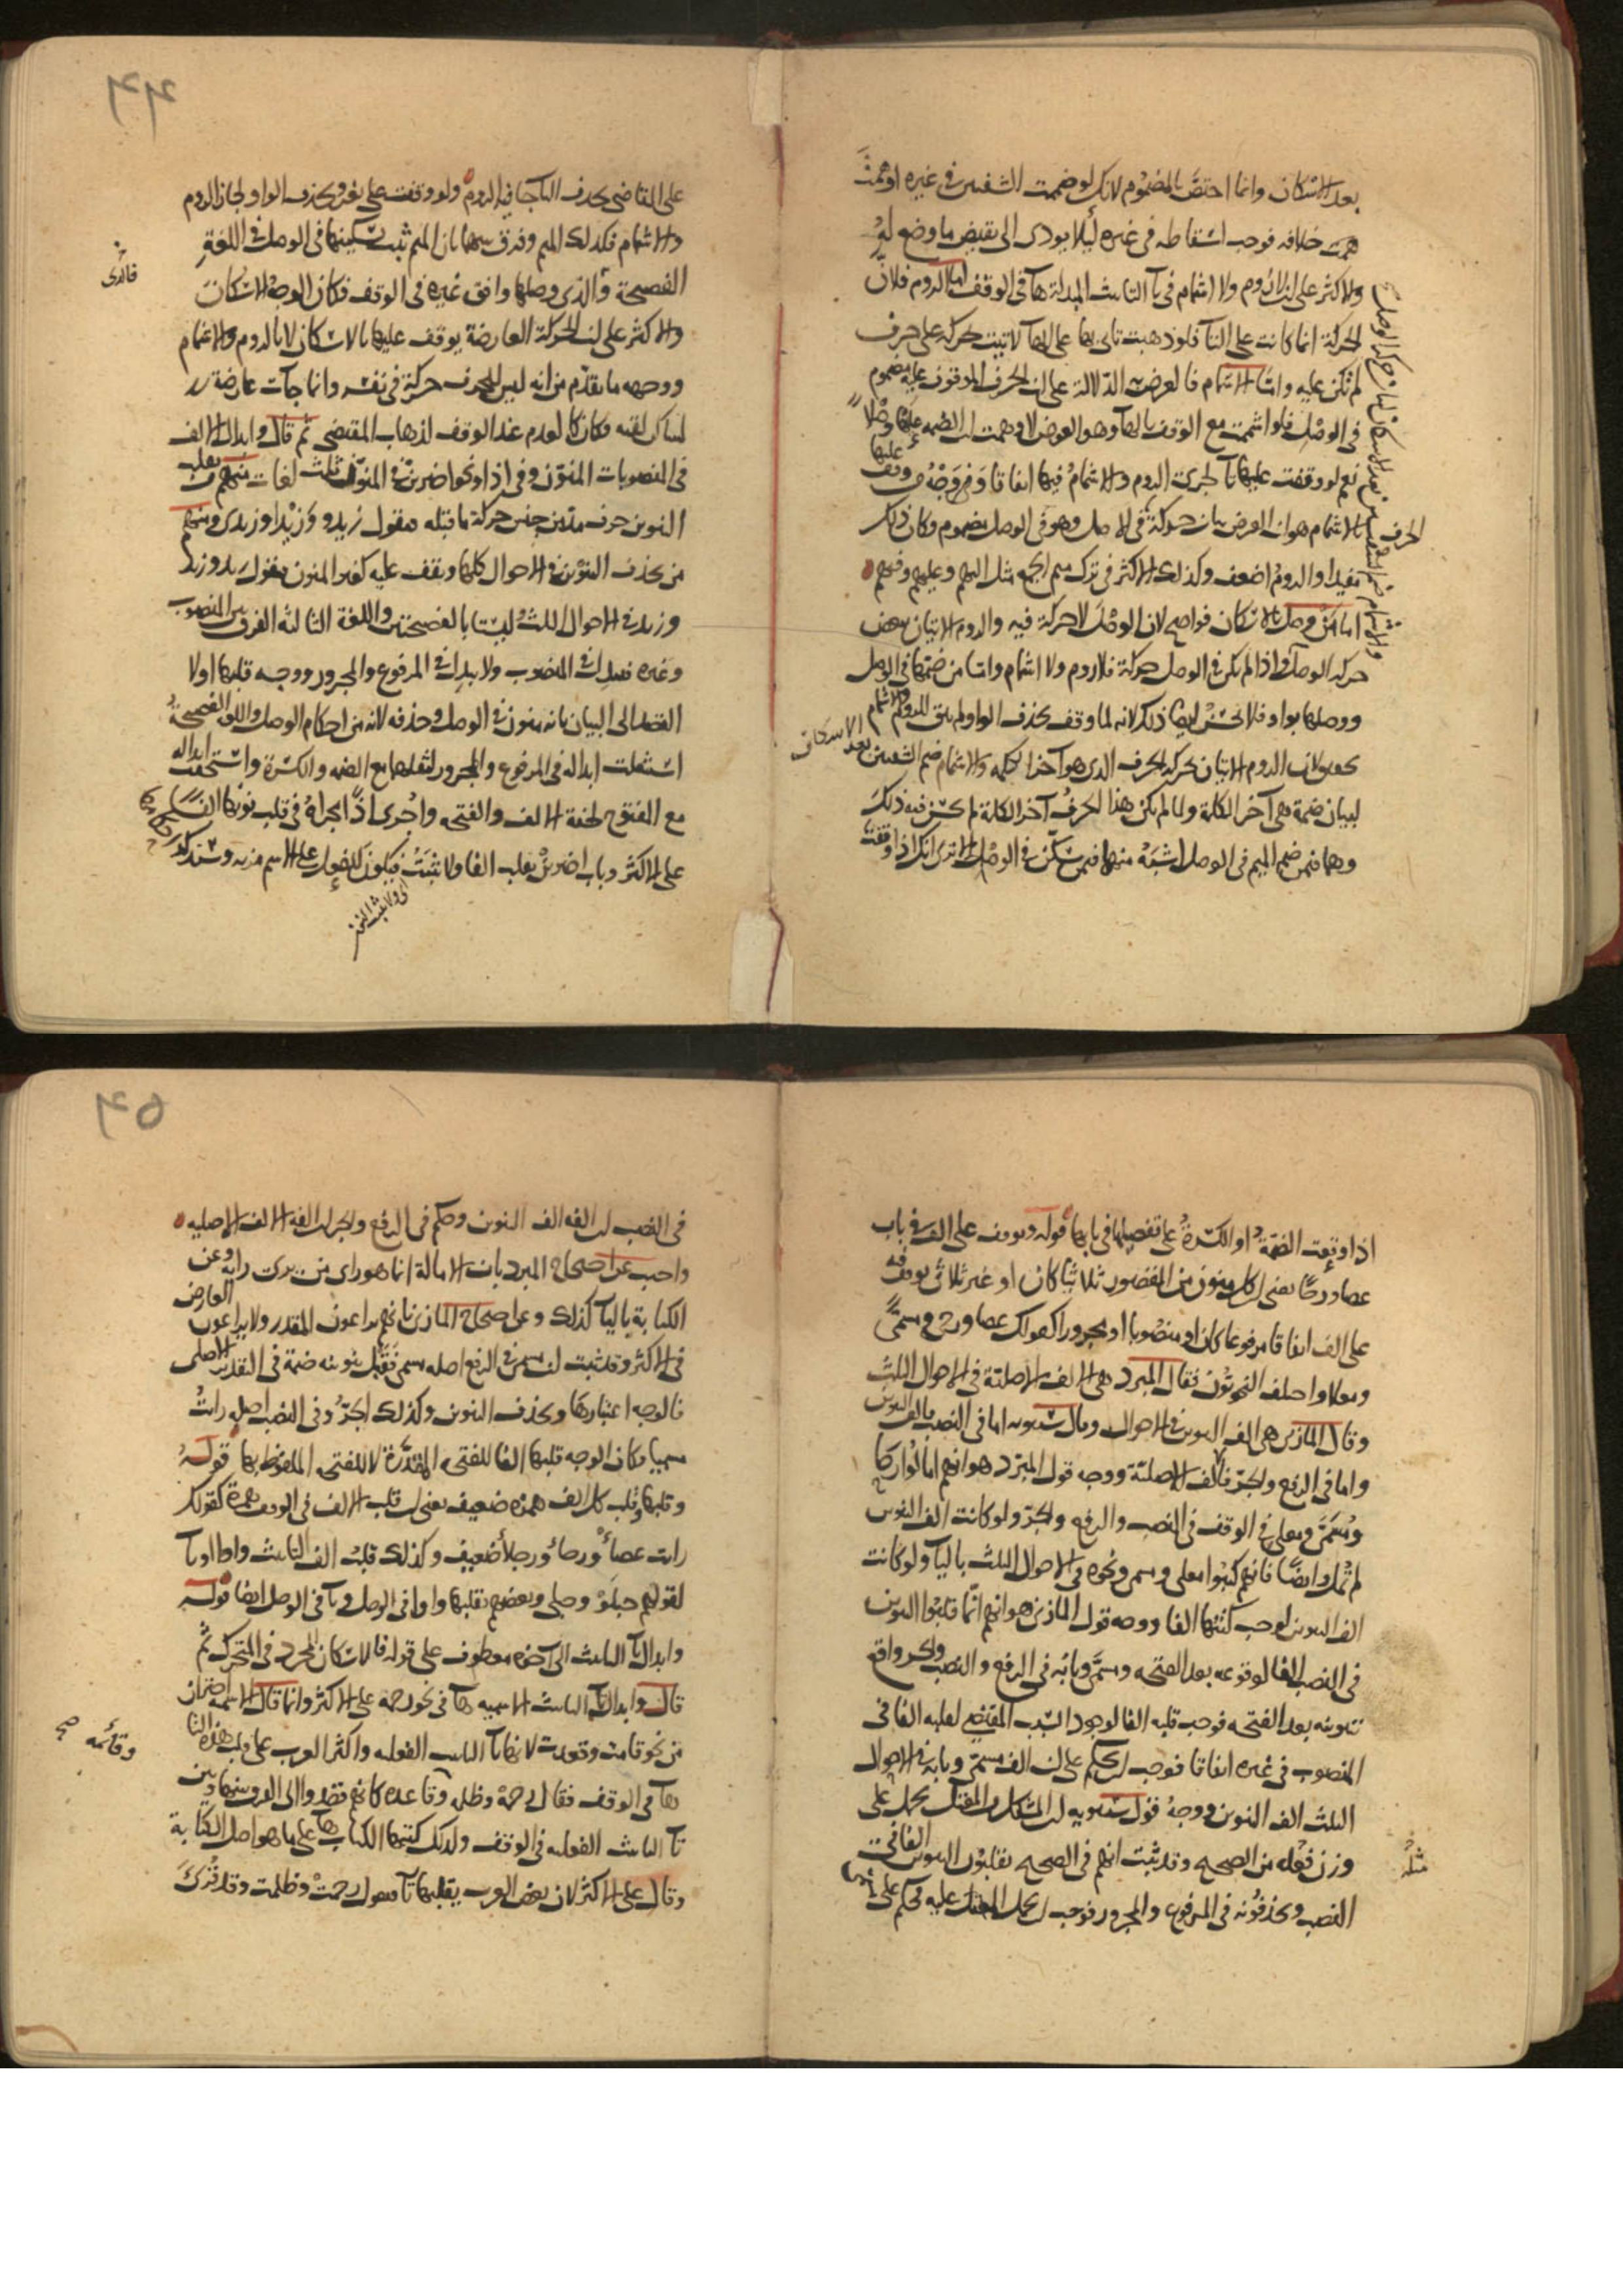 بعد الاسكان وانما اختص بالمضموم لانك لو ضممت الشفتين في غيره اوهمت
خلافه فوجب اسقاطه في غيره ليلا يودي الى نقيض ما وضع له
والاكثر على ان لا روم ولا اشمام في تآ التانيث المبدلة هآ في الوقف اما الروم فلان
الحركة انما كانت على التآ فلو ذهبت تاتي بها على الهآ لاتيت بحركة على حرف
لم تكن عليه واما الاشمام فالغرض الدلالة على ان الحرف الموقوف عليه مضموم
في الوصل فلو اشممت مع الوقف بالهآ وهو العوض لاوهمت ان الضمة عليها وصلا
نعم لو وقفت عليها تآ لجرى الروم والاشمام فيها اتفاقا
بالاشمام هو ان الغرض بيان حركة في الاصل وهو في الوصل مضموم وكان ذلك
مفيدا والروم اضعف وكذلك الاكثر في ترك ميم الجمع مثل اليهم وعليهم وفيهم
اما من وصل بالاسكان فواضح لان الوصل لا حركة فيه والروم الاتيان ببعض
حركة الوصل واذا لم يكن في الوصل حركة فلا روم ولا اشمام واما من ضمها في الوصل
ووصلها بواو فلا يحسن ايضا ذلك لانه لما وقف بحذف الواو لم يبق للروم والاشمام
لان الروم الاتيان بحركة الحرف الذي هو آخر الكلمة والاشمام ضم الشفتين بعد الاسكان
لبيان ضمة هي آخر الكلمة ولما لم يكن هذا الحرف آخر الكلمة لم يحسن فيه ذلك
وهما فيمن ضم الميم في الوصل اشبه منهما فيمن سكن في الوصل الا ترى انك اذا وقفت
٢٤٤
على القاضي بحذف اليآ جا فيه الروم ولو وقفت على يغزو بحذف الواو لجاز الروم
والاشمام فكذلك الميم وفرق بينهما بان الميم ثبت تسكينها في الوصل في اللغة
الفصيحة والذي وصلها وافق غيره في الوقف فكان الوجه الاسكان
والاكثر على ان الحركة العارضة يوقف عليها بالاسكان لا بالروم والاشمام
ووجهه ما تقدم من انه ليس للحرف حركة في نفسه وانما جآت عارضة
لساكن لقيه فكان كالمعدوم عند الوقف لذهاب المقتضي ثم قال وابدال الالف
في المنصوبات المنون وفي اذا ونحو اضربن في المنون ثلث لغات منهم من يقلب
التنوين حرف مد من جنس حركة ما قبله فيقول زيدو وزيدا وزيدي ومنهم
من يحذف التنوين في الاحوال كلها ويقف عليه كغير المنون فيقول زيد وزيد
وزيد في الاحوال الثلث وليستا بالفصيحتين واللغة الثالثة الفرق بين المنصوب
وغيره فيبدل في المنصوب ولا يبدل في المرفوع والمجرور ووجه قلبها اولا
القصد الى البيان بانه منون في الوصل وحذفه لانه من احكام الوصل واللغة الفصيحة
استثقلت ابداله في المرفوع والمجرور لثقلها مع الضمة والكسرة واستخفت ابداله
مع المفتوح لخفة الالف والفتحة واجري اذا مجراه في قلب نونها الفا
على الاكثر وباب اضربن يقلب الفا ولا تثبت فيكون للفعل على الاسم مزية وستذكر
اي ولا يثبت النون
اذا وقعت الضمة او الكسرة على تفصيلها في بابها قوله ويوقف على الالف في باب
عصا ورحا يعني ان كل منون من المقصور ثلاثيا كان او غير ثلاثي يوقف
على الف اتفاقا مرفوعا كان او منصوبا او مجرورا كقولك عصا ورحى ومسمى
ومعلا واختلف النحويون فقال المبرد هي الالف الاصلية في الاحوال الثلث
وقال المازني هي الف التنوين في الاحوال وقال سيبويه اما في النصب فالف التنوين
واما في الرفع والجر فالف الاصلية ووجه قول المبرد هو انهم امالوا رحا
ومسمى ومعلى في الوقف في النصب والرفع والجر ولو كانت الف التنوين
لم تمل وايضا فانهم كتبوا معلى ومسمى ونحوه في الاحوال الثلث باليآ ولو كانت
الف التنوين لوجب كتبها الفا ووجه قول المازني هو انهم انما قلبوا التنوين
في النصب الفا لوقوعه بعد الفتحة ومسمى وبابه في الرفع والنصب والجر واقع
تنوينه بعد الفتحة فوجب قلبه الفا لوجود السبب المقتضي لقلبه الفا في
المنصوب في غيره اتفاقا فوجب ان يحكم على ان الف مسمى وبابه في الاحوال
الثلث الف التنوين ووجه قول سيبويه ان المشكل المعتل يحمل على
وزن مثله من الصحيح وقد ثبت انهم في الصحيح يقلبون التنوين الفا في
النصب ويحذفونه في المرفوع والمجرور فوجب ان يحمل المعتل عليه فحكم على
٢٤٥
في النصب ان الفه الف التنوين وحكم في الرفع والجر ان الفه الالف الاصلية
واجيب عن احتجاج المبرد بان الامالة انما هو راي من يرى رايه وعن
الكتابة باليآ كذلك وعن احتجاج المازني بانهم يراعون المقدر ولا يراعون العارض
في الاكثر وقد ثبت ان مسمى في الرفع اصله مسمى فقبل تنوينه ضمة في التقدير الاصلي
فالوجه اعتبارها وبحذف التنوين وكذلك الجر وفي النصب اصله رايت
مسميا فكان الوجه قلبها الفا للفتحة المقدرة لا للفتحة الملفوظ بها قوله
وقلبها وقلب كل الف همزة ضعيف يعني ان قلب الالف في الوقف همزة كقولك
رايت عصأ ورحأ ورجلأ ضعيف وكذلك قلب الف التانيث واوا او يآ
كقولهم حبلو وحبلي وبعضهم يقلبها واوا في الوصل ويآ في الوصل ايضا قوله
وابدال تآ التانيث الى آخره معطوف على قوله فالاسكان المجرد في المتحرك ثم
قال وابدال تآ التانيث الاسمية هآ في نحو رحمة على الاكثر وانما قال الاسمية احتراز
من نحو قامت وقعدت لانها تآ التانيث الفعلية واكثر العرب على قلب هذه التا
هآ في الوقف فقال رحمة وظلمة وقاعدة كانهم قصدوا الى الفرق بينها وبين
وقائمه صح
تآ التانيث الفعلية في الوقف ولذلك كتبها الكتاب هآ على ما هو اصل الكتابة
وقال على الاكثر لان بعض العرب يقلبها تآ فيقول رحمت وظلمت وقد قرئ